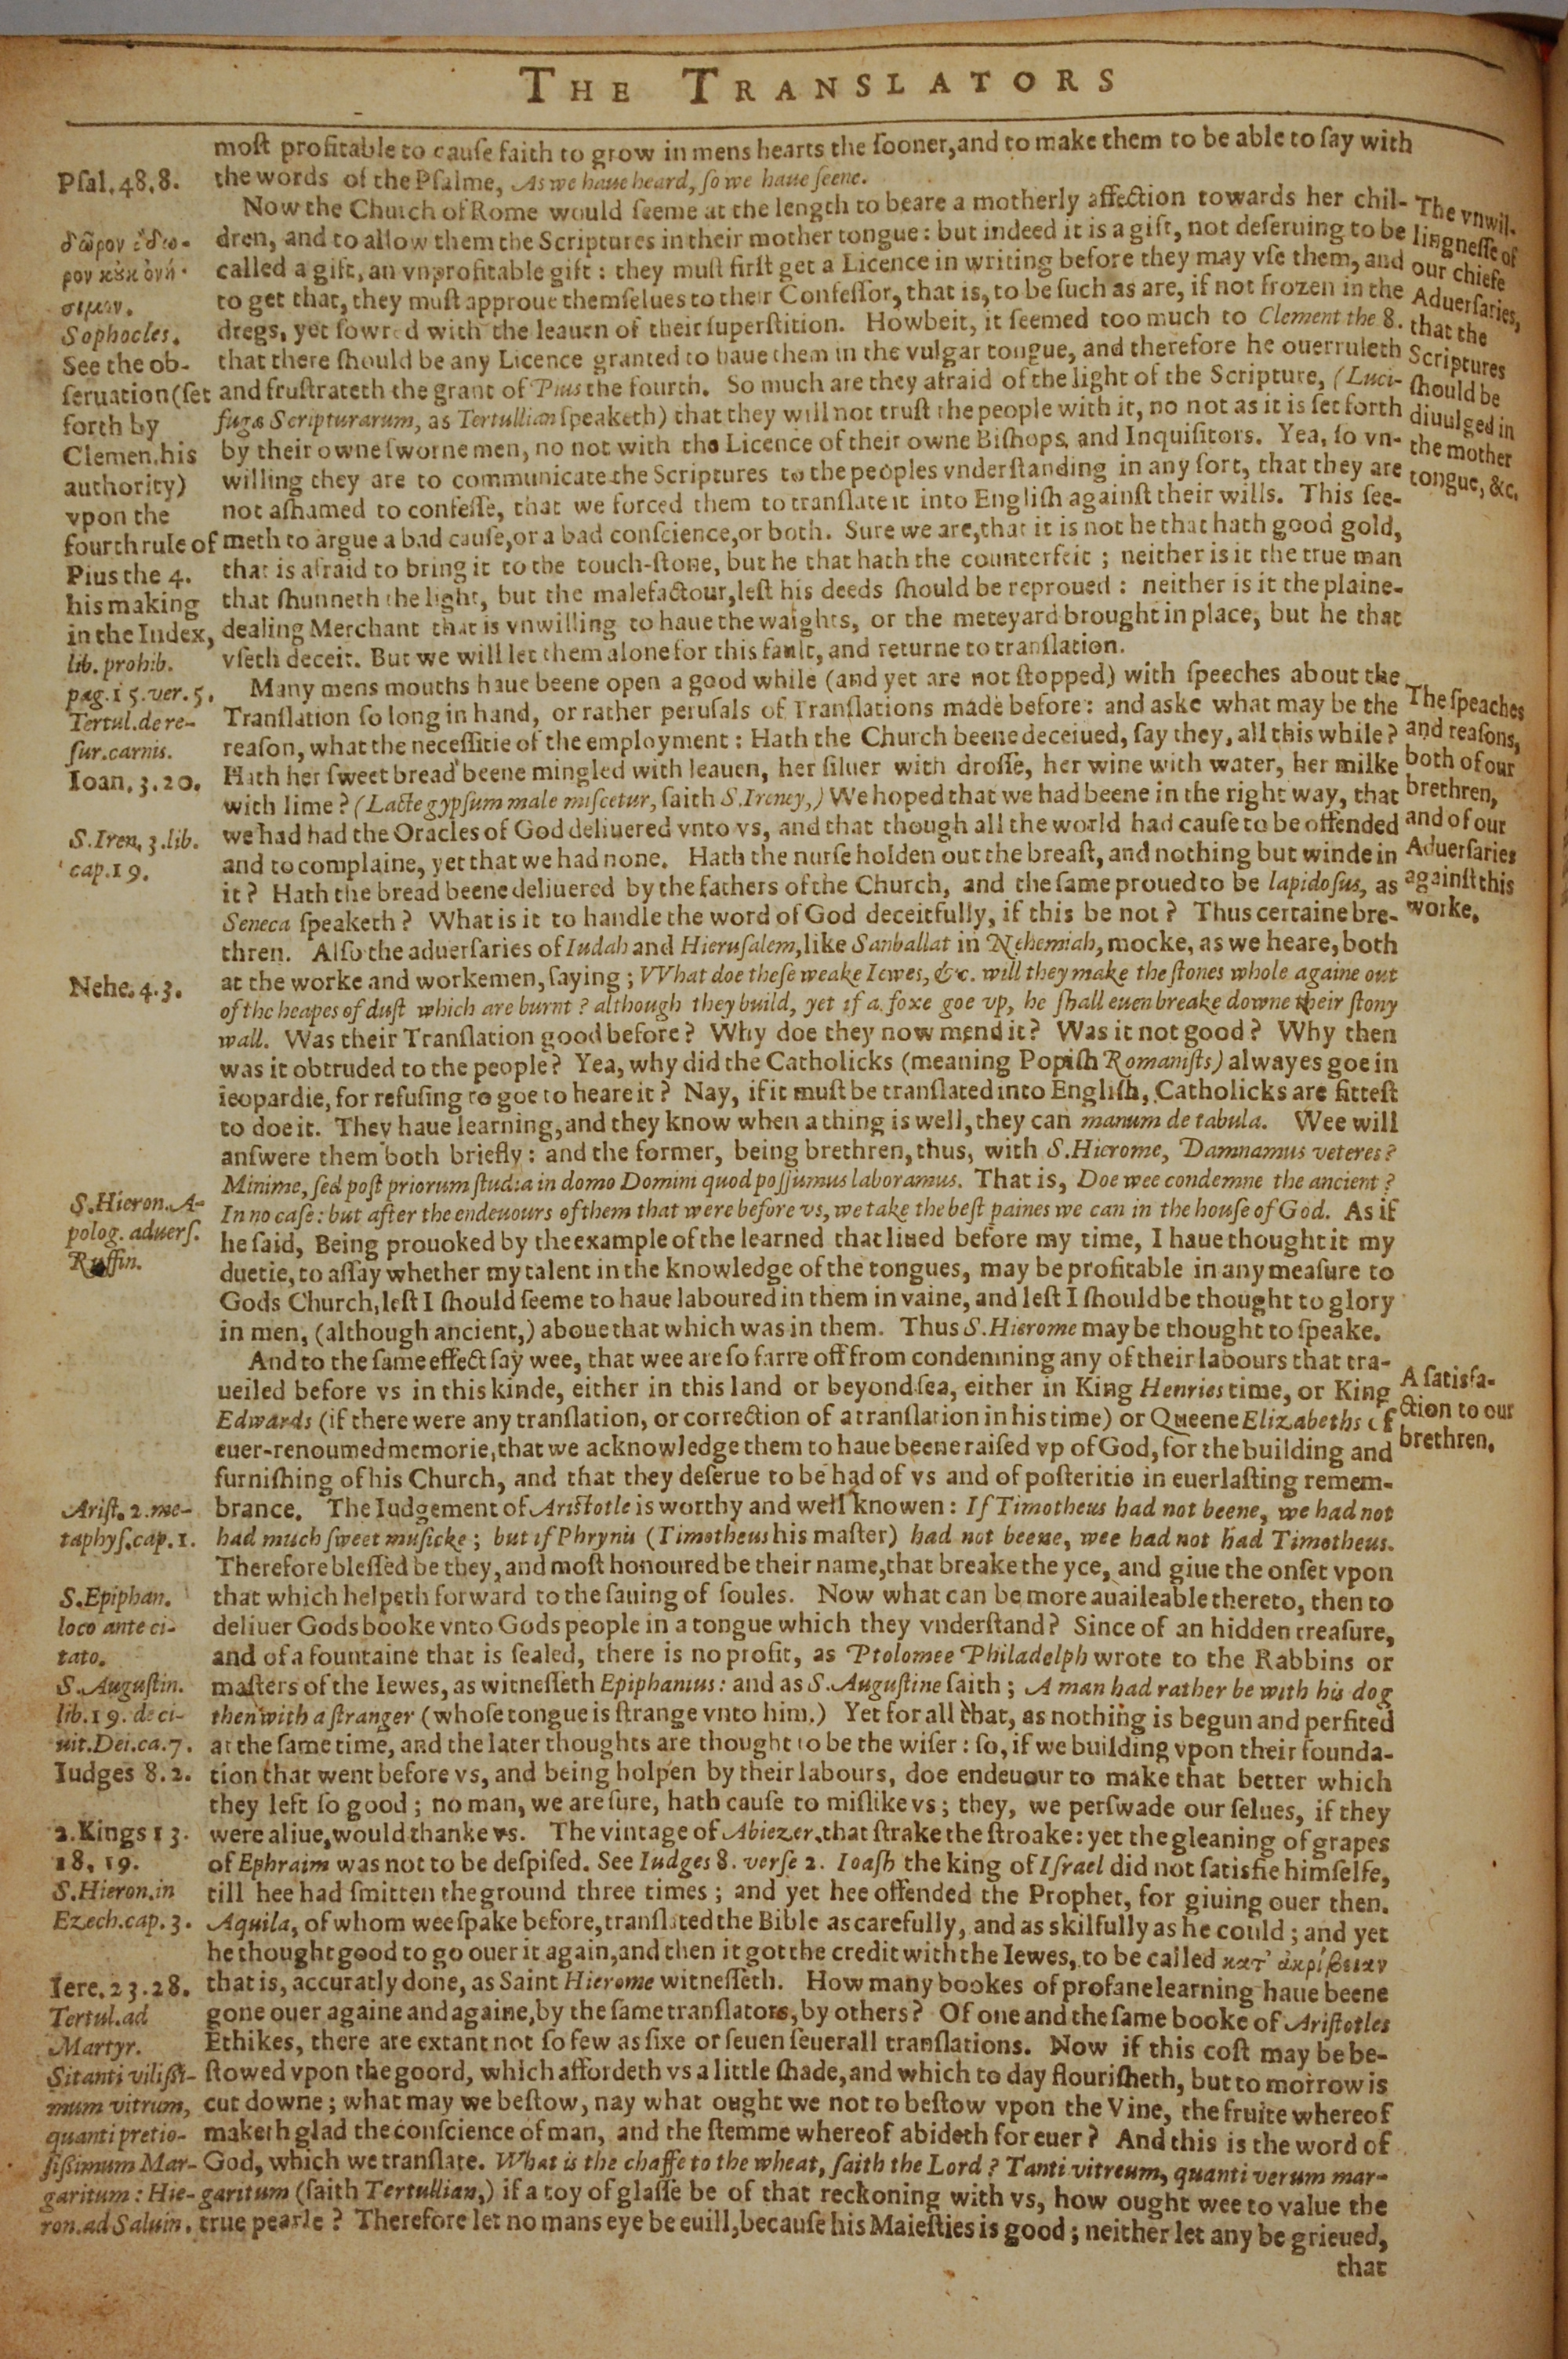 THE TRANSLATORS
moſt profitable to cauſe faith to grow in mens hearts the ſooner, and to make them to be able to ſay with
the words of the Pſalme, As we haue heard, ſo we haue ſeene.
Now the Church of Rome would ſeeme at the length to beare a motherly affection towards her chil-
dren, and to allow them the Scriptures in their mother tongue: but indeed it is a gift, not deſeruing to be
called a gift, an vnprofitable gift: they muſt firſt get a Licence in writing before they may vſe them, and
to get that, they muſt approue themſelues to their Confeſſor, that is, to be ſuch as are, if not frozen in the
dregs, yet ſowred with the leauen of their ſuperſtition. Howbeit, it ſeemed too much to Clement the 8.
that there ſhould be any Licence granted to haue them in the vulgar tongue, and therefore he ouerruleth
and fruſtrateth the grant of Pius the fourth. So much are they afraid of the light of the Scripture, (Luci-
fugæ Scripturarum, as Tertullian ſpeaketh) that they will not truſt the people with it, no not as it is ſet forth
by their owne ſworne men, no not with the Licence of their owne Biſhops and Inquiſitors. Yea, ſo vn-
willing they are to communicate the Scriptures to the peoples vnderſtanding in any ſort, that they are
not aſhamed to confeſſe, that we forced them to tranſlate it into Engliſh againſt their wills. This ſee-
meth to argue a bad cauſe, or a bad conſcience, or both. Sure we are, that it is not he that hath good gold,
that is afraid to bring it to the touch-ſtone, but he that hath the counterfeit; neither is it the true man
that ſhunneth the light, but the malefactour, leſt his deeds ſhould be reproued: neither is it the plaine-
dealing Merchant that is vnwilling to haue the waights, or the meteyard brought in place, but he that
vſeth deceit. But we will let them alone for this fault, and returne to tranſlation.
Many mens mouths haue beene open a good while (and yet are not ſtopped) with ſpeeches about the
Tranſlation ſo long in hand, or rather peruſals of Tranſlations made before: and aske what may be the
reaſon, what the neceſſitie of the employment: Hath the Church beene deceiued, ſay they, all this while?
Hath her ſweet bread beene mingled with leauen, her ſiluer with droſſe, her wine with water, her milke
with lime? (Lacte gypſum male miſcetur, ſaith S. Ireney,) We hoped that we had beene in the right way, that
we had had the Oracles of God deliuered vnto vs, and that though all the world had cauſe to be offended
and to complaine, yet that we had none. Hath the nurſe holden out the breaſt, and nothing but winde in
it? Hath the bread beene deliuered by the fathers of the Church, and the ſame proued to be lapidoſus, as
Seneca ſpeaketh? What is it to handle the word of God deceitfully, if this be not? Thus certaine bre-
thren. Alſo the aduerſaries of Iudah and Hieruſalem, like Sanballat in Nehemiah, mocke, as we heare, both
at the worke and workemen, ſaying; VVhat doe theſe weake Iewes, &c. will they make the ſtones whole againe out
of the heapes of duſt which are burnt? although they build, yet if a foxe goe vp, he ſhall euen breake downe their ſtony
wall. Was their Tranſlation good before? Why doe they now mend it? Was it not good? Why then
was it obtruded to the people? Yea, why did the Catholicks (meaning Popiſh Romaniſts) alwayes goe in
ieopardie, for refuſing to goe to heare it? Nay, if it muſt be tranſlated into Engliſh, Catholicks are fitteſt
to doe it. They haue learning, and they know when a thing is well, they can manum de tabula. Wee will
anſwere them both briefly: and the former, being brethren, thus, with S. Hierome, Damnamus veteres?
Minime, ſed poſt priorum ſtudia in domo Domini quod poſſumus laboramus. That is, Doe wee condemne the ancient?
In no caſe: but after the endeuours of them that were before vs, we take the beſt paines we can in the houſe of God. As if
he ſaid, Being prouoked by the example of the learned that liued before my time, I haue thought it my
duetie, to aſſay whether my talent in the knowledge of the tongues, may be profitable in any meaſure to
Gods Church, leſt I ſhould ſeeme to haue laboured in them in vaine, and leſt I ſhould be thought to glory
in men, (although ancient,) aboue that which was in them. Thus S. Hierome may be thought to ſpeake.
And to the ſame effect ſay wee, that wee are ſo farre off from condemning any of their labours that tra-
ueiled before vs in this kinde, either in this land or beyond ſea, either in King Henries time, or King
Edwards (if there were any tranſlation, or correction of a tranſlation in his time) or Queene Elizabeths of
euer-renoumed memorie, that we acknowledge them to haue beene raiſed vp of God, for the building and
furniſhing of his Church, and that they deſerue to be had of vs and of poſteritie in euerlaſting remem-
brance. The Iudgement of Ariſtotle is worthy and well knowen: If Timotheus had not beene, we had not
had much ſweet muſicke; but if Phrynis (Timotheus his maſter) had not beene, wee had not had Timotheus.
Therefore bleſſed be they, and moſt honoured be their name, that breake the yce, and giue the onſet vpon
that which helpeth forward to the ſauing of ſoules. Now what can be more auaileable thereto, then to
deliuer Gods booke vnto Gods people in a tongue which they vnderſtand? Since of an hidden treaſure,
and of a fountaine that is ſealed, there is no profit, as Ptolomee Philadelph wrote to the Rabbins or
maſters of the Iewes, as witneſſeth Epiphanius: and as S. Auguſtine ſaith; A man had rather be with his dog
then with a ſtranger (whoſe tongue is ſtrange vnto him.) Yet for all that, as nothing is begun and perfited
at the ſame time, and the later thoughts are thought to be the wiſer: ſo, if we building vpon their founda-
tion that went before vs, and being holpen by their labours, doe endeuour to make that better which
they left ſo good; no man, we are ſure, hath cauſe to miſlike vs; they, we perſwade our ſelues, if they
were aliue, would thanke vs. The vintage of Abiezer, that ſtrake the ſtroake: yet the gleaning of grapes
of Ephraim was not to be deſpiſed. See Iudges 8. verſe 2. Ioaſh the king of Iſrael did not ſatisfie himſelfe,
till hee had ſmitten the ground three times; and yet hee offended the Prophet, for giuing ouer then.
Aquila, of whom wee ſpake before, tranſlated the Bible as carefully, and as skilfully as he could; and yet
he thought good to go ouer it again, and then it got the credit with the Iewes, to be called κατ' ἀκρίβειαν
that is, accuratly done, as Saint Hierome witneſſeth. How many bookes of profane learning haue beene
gone ouer againe and againe, by the ſame tranſlators, by others? Of one and the ſame booke of Ariſtotles
Ethikes, there are extant not ſo few as ſixe or ſeuen ſeuerall tranſlations. Now if this coſt may be be-
ſtowed vpon the goord, which affordeth vs a little ſhade, and which to day flouriſheth, but to morrow is
cut downe; what may we beſtow, nay what ought we not to beſtow vpon the Vine, the fruite whereof
maketh glad the conſcience of man, and the ſtemme whereof abideth for euer? And this is the word of
God, which we tranſlate. What is the chaffe to the wheat, ſaith the Lord? Tanti vitreum, quanti verum mar-
garitum (ſaith Tertullian,) if a toy of glaſſe be of that reckoning with vs, how ought wee to value the
true pearle? Therefore let no mans eye be euill, becauſe his Maieſties is good; neither let any be grieued,
that
Pſal. 48. 8.
δῶρον ἄδω-
ρον κοὐκ ὀνή-
σιμον.
Sophocles.
See the ob-
ſeruation (ſet
forth by
Clemen. his
authority)
vpon the
fourth rule of
Pius the 4.
his making
in the Index,
lib. prohib.
pag. 15. ver. 5.
Tertul. de re-
ſur. carnis.
Ioan. 3. 20.
S. Iren. 3. lib.
cap. 19.
Nehe. 4. 3.
S. Hieron. A-
polog. aduerſ.
Ruffin.
Ariſt. 2. me-
taphyſ. cap. 1.
S. Epiphan.
loco ante ci-
tato.
S. Auguſtin.
lib. 19. de ci-
uit. Dei. ca. 7.
Iudges 8. 2.
2. Kings 13.
18, 19.
S. Hieron. in
Ezech. cap. 3.
Iere. 23. 28.
Tertul. ad
Martyr.
Si tanti viliſſi-
mum vitrum,
quanti pretio-
ſiſſimum Mar-
garitum: Hie-
ron. ad Saluin.
The vnwil-
lingneſſe of
our chiefe
Aduerſaries,
that the
Scriptures
ſhould be
diuulged in
the mother
tongue, &c.
The ſpeaches
and reaſons,
both of our
brethren,
and of our
Aduerſaries
againſt this
worke.
A ſatisfa-
ction to our
brethren.